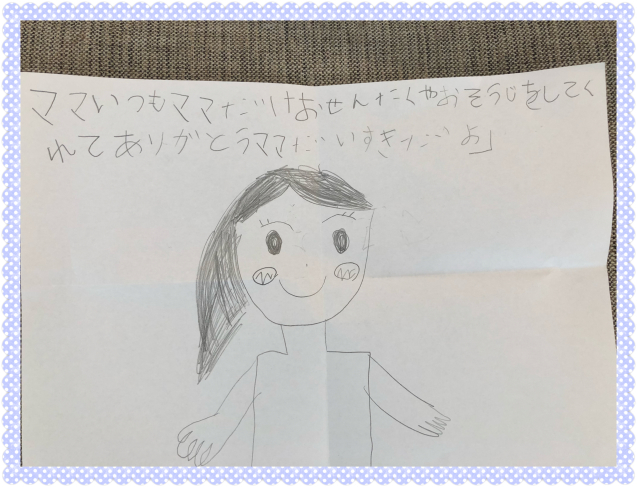 ママいつもママだけおせんたくやおそうじをしてく
れてありがとうママだいすきだよ」